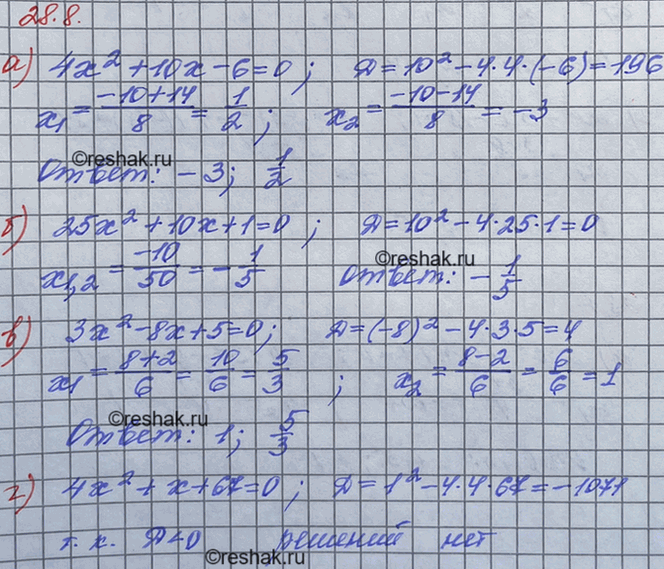 28.8.
а) 4x² + 10x - 6 = 0 ; Д = 10² - 4·4·(-6) = 196
x₁ = (-10+14)/8 = 1/2 ; x₂ = (-10-14)/8 = -3
©reshak.ru
Ответ: -3; 1/2
б) 25x² + 10x + 1 = 0 ; Д = 10² - 4·25·1 = 0
©reshak.ru
x₁,₂ = -10/50 = -1/5 Ответ: -1/5
в) 3x² - 8x + 5 = 0; Д = (-8)² - 4·3·5 = 4
x₁ = (8+2)/6 = 10/6 = 5/3 ; x₂ = (8-2)/6 = 6/6 = 1
©reshak.ru
Ответ: 1; 5/3
г) 4x² + x + 67 = 0 ; Д = 1² - 4·4·67 = -1071
т.к. Д<0 решений нет
©reshak.ru